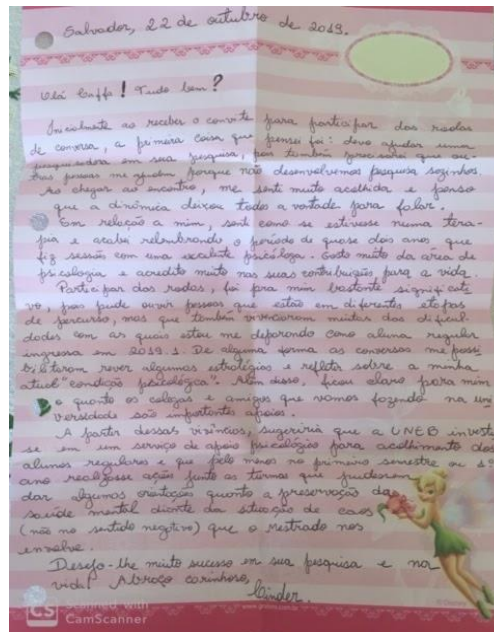 Salvador, 22 de outubro de 2019.
Olá Caffa! Tudo bem?
Inicialmente ao receber o convite para participar das rodas
de conversa, a primeira coisa que pensei foi: devo ajudar uma
pesquisadora em sua pesquisa, pois também precisarei que ou-
tras pessoas me ajudem porque não desenvolvemos pesquisa sozinhos.
Ao chegar ao encontro, me senti muito acolhida e penso
que a dinâmica deixou todos a vontade para falar.
Em relação a mim, senti como se estivesse numa tera-
pia e acabei relembrando o período de quase dois anos que
fiz sessão com uma excelente psicóloga. Gosto muito da área de
psicologia e acredito muito nas suas contribuições para a vida.
Participar das rodas, foi pra mim bastante significati-
vo, pois pude ouvir pessoas que estão em diferentes etapas
de percurso, mas que também vivenciaram muitas das dificul-
dades com as quais estou me deparando como aluna regular
ingressa em 2019.1. De alguma forma as conversas me possi-
bilitaram rever algumas estratégias e refletir sobre a minha
atual "condição psicológica". Além disso, ficou claro para mim
o quanto os colegas e amigos que vamos fazendo na uni
versidade são importantes apoios.
A partir dessas vivências, sugeriria que a UNEB investis
se em um serviço de apoio psicológico para acolhimento dos
alunos regulares e que pelo menos no primeiro semestre ou
ano realizasse ações junto as turmas que pudessem
dar algumas orientações quanto a preservação da
saúde mental diante da situação de caos
(não no sentido negativo) que o mestrado nos
envolve.
Desejo-lhe muito sucesso em sua pesquisa e na
vida! Abraço carinhoso,
Cinder.
CS Scanned with
CamScanner